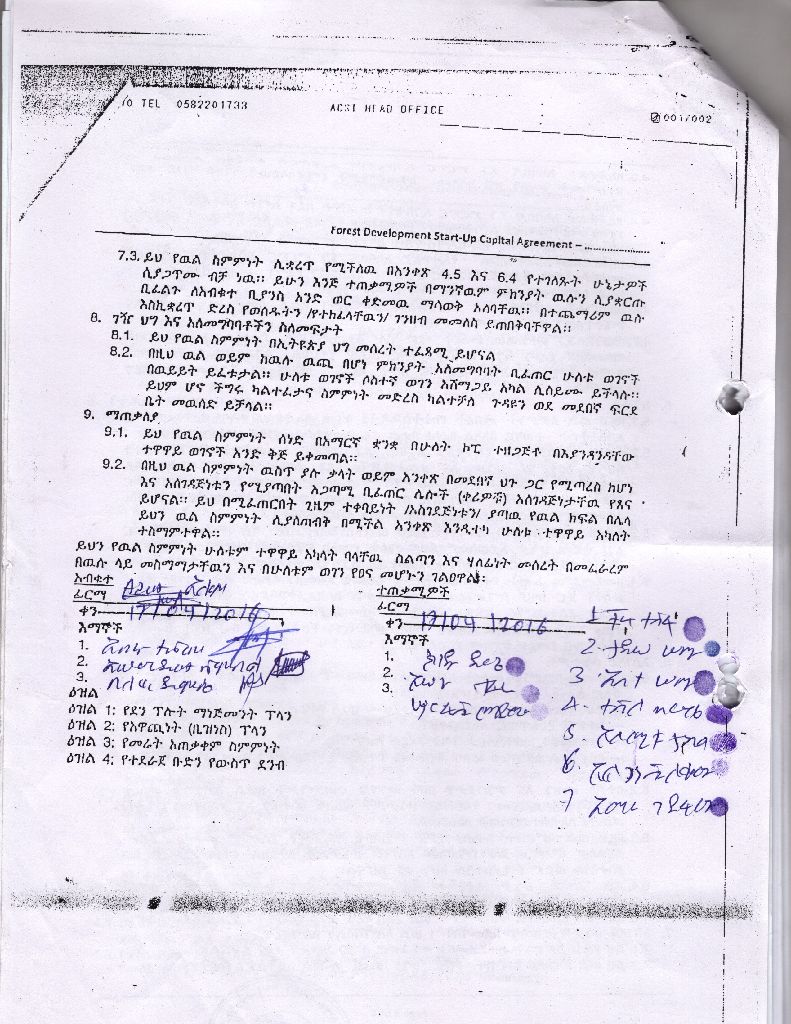 /O TEL 0582201733 ACSI HEAD OFFICE 001/002
Forest Development Start-Up Capital Agreement – ......................
7.3. ይህ የዉል ስምምነት ሊቋረጥ የሚችለዉ በአንቀጽ 4.5 እና 6.4 የተገለጹት ሁኔታዎች
ሲያጋጥሙ ብቻ ነዉ፡፡ ይሁን እንጅ ተጠቃሚዎች በማንኛዉም ምክንያት ዉሉን ሲያቋርጡ
ቢፈልጉ ለአብቁተ ቢያንስ አንድ ወር ቀድመዉ ማሳወቅ አለባቸዉ፡፡ በተጨማሪም ዉሉ
እስኪቋረጥ ድረስ የወሰዱትን /የተከፈላቸዉን/ ገንዘብ መመለስ ይጠበቅባቸዋል፡፡
8. ገዥ ህግ እና አለመግባባቶችን ስለመፍታት
8.1. ይህ የዉል ስምምነት በኢትዮጵያ ህግ መሰረት ተፈጻሚ ይሆናል
8.2. በዚህ ዉል ወይም ከዉሉ ዉጪ በሆነ ምክንያት አለመግባባት ቢፈጠር ሁለቱ ወገኖች
በዉይይት ይፈቱታል፡፡ ሁለቱ ወገኖች ሶስተኛ ወገን አሸማጋይ አካል ሊሰይሙ ይችላሉ፡፡
ይህም ሆኖ ችግሩ ካልተፈታና ስምምነት መድረስ ካልተቻለ ጉዳዩን ወደ መደበኛ ፍርድ
ቤት መዉሰድ ይቻላል፡፡
9. ማጠቃለያ
9.1. ይህ የዉል ስምምነት ሰነድ በአማርኛ ቋንቋ በሁለት ኮፒ ተዘጋጅቶ በእያንዳንዳቸው
ተዋዋይ ወገኖች አንድ ቅጅ ይቀመጣል፡፡
9.2. በዚህ ዉል ስምምነት ዉስጥ ያሉ ቃላት ወይም አንቀጽ በመደበኛ ህጉ ጋር የሚጣረስ ከሆነ
እና አስገዳጅነቱን የሚያጣበት አጋጣሚ ቢፈጠር ሌሎች (ቀሪዎቹ) አስገዳጅነታቸዉ የጸና
ይሆናል፡፡ ይህ በሚፈጠርበት ጊዜም ተቀባይነት /አስገደጅነቱን/ ያጣዉ የዉል ክፍል በሌላ
ይህን ዉል ስምምነት ሊያስጠብቅ በሚችል አንቀጽ እንዲተካ ሁለቱ ተዋዋይ አካላት
ተስማምተዋል፡፡
ይህን የዉል ስምምነት ሁለቱም ተዋዋይ አካላት ባላቸዉ ስልጣን እና ሃላፊነት መሰረት በመፈራረም
በዉሉ ላይ መስማማታቸዉን እና በሁለቱም ወገን የፀና መሆኑን ገልፀዋል፡፡
አብቁተ
ፊርማ
ቀን 17/04/2016
እማኞች
1.
2.
3.
ተጠቃሚዎች
ፊርማ
ቀን 17/04/2016
እማኞች
1.
2.
3.
1
2
3
4
5
6
7
ዕዝል
ዕዝል 1: የደን ፕሎት ማነጅመንት ፕላን
ዕዝል 2: የአዋጪነት (ቢዝነስ) ፕላን
ዕዝል 3: የመሬት አጠቃቀም ስምምነት
ዕዝል 4: የተደራጀ ቡድን የውስጥ ደንብ